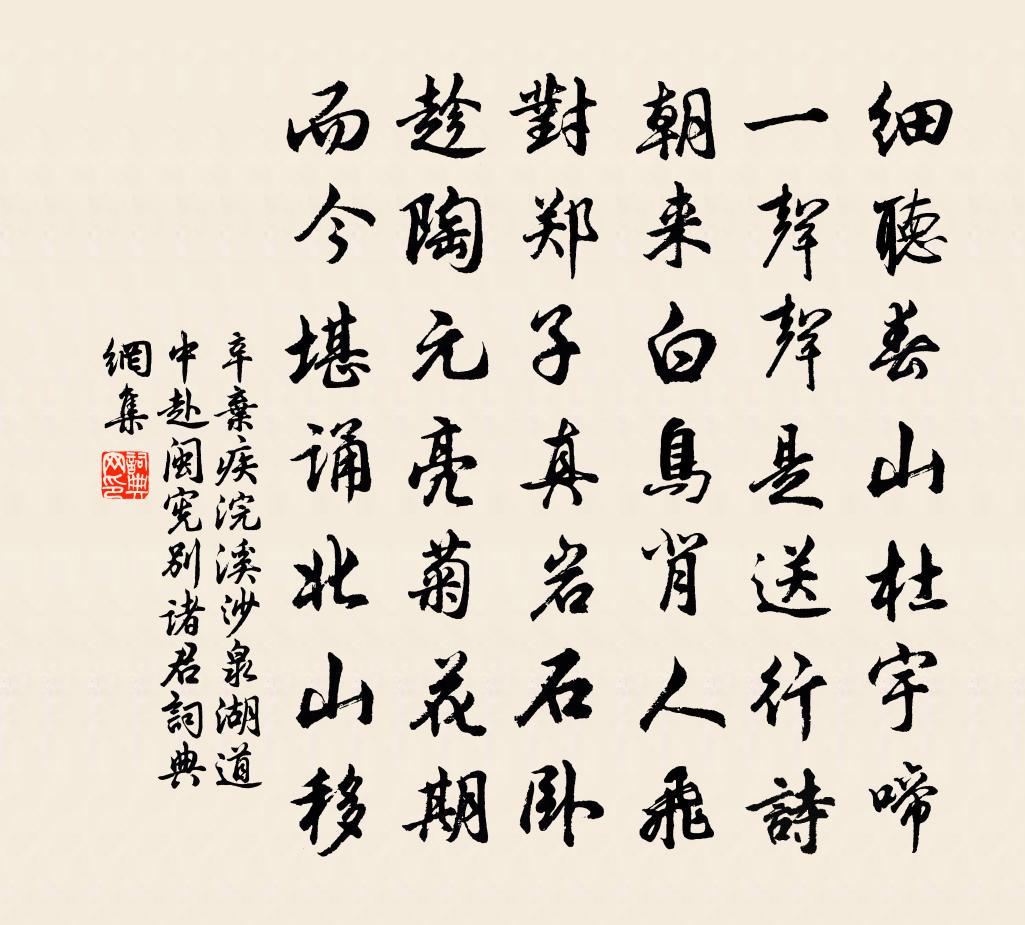 细聽春山杜宇啼
一聲聲是送行詩
朝来白鳥背人飛
對郑子真岩石卧
趁陶元亮菊花期
而今堪诵北山移
辛棄疾浣溪沙泉湖道
中赴闽宪别诸君詞典
網集
詞典网印